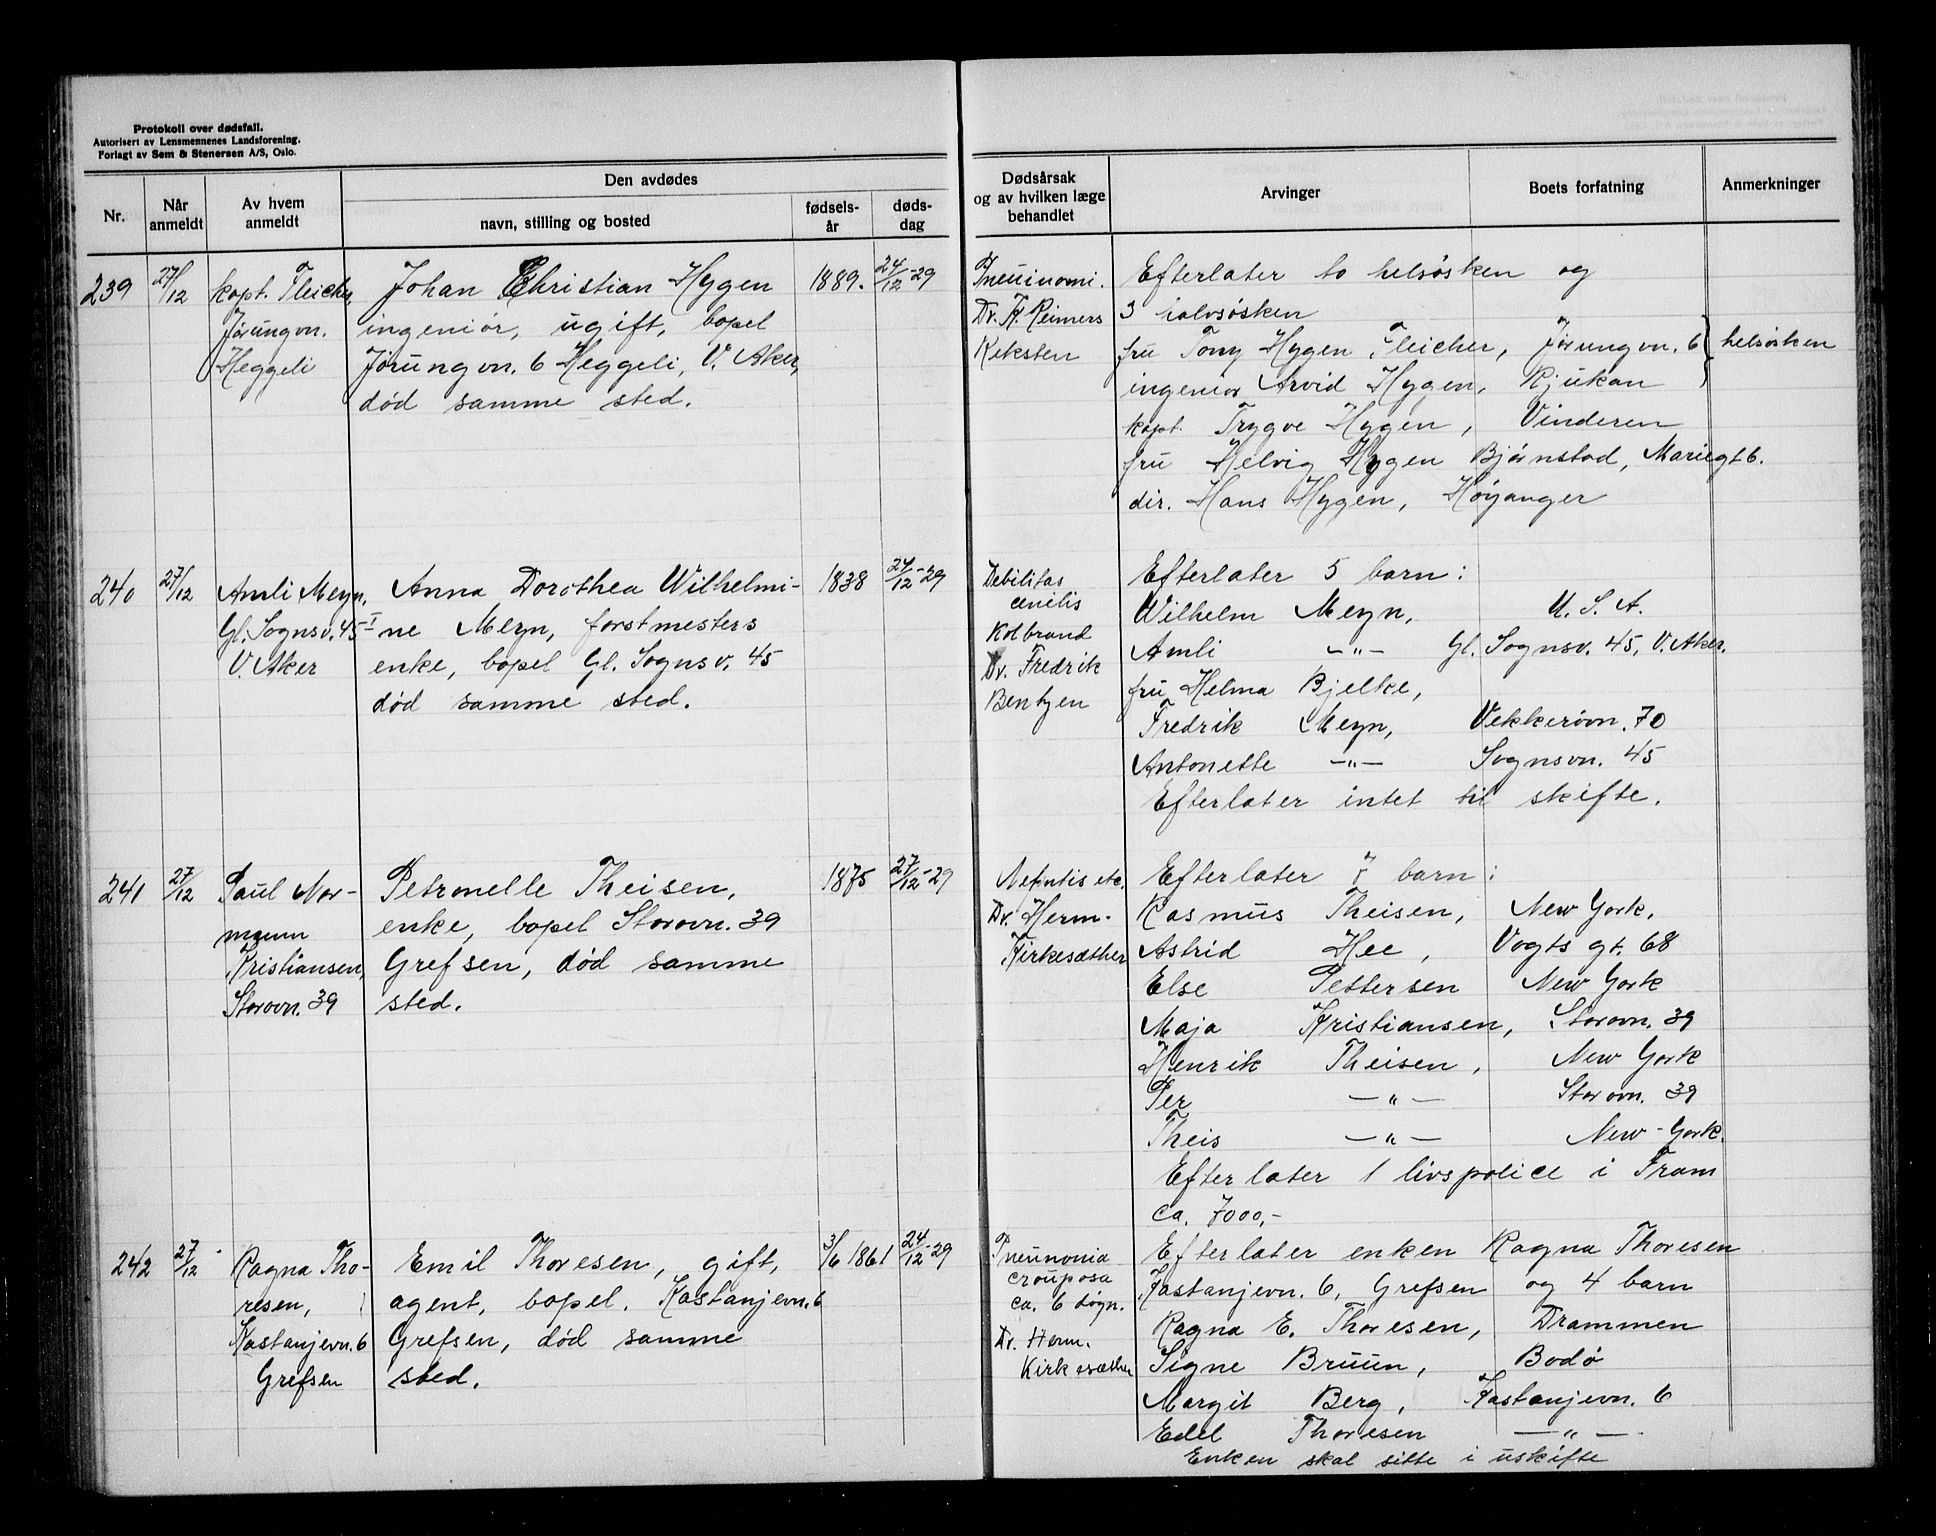 Protokoll over dødsfall.
Autorisert av Lensmennenes Landsforening.
Forlagt av Sem & Stenersen A/S, Oslo.
Nr.
Når anmeldt
Av hvem anmeldt
Den avdødes
navn, stilling og bosted
fødsels-år
døds-dag
Dødsårsak
og av hvilken læge
behandlet
Arvinger
Boets forfatning
Anmerkninger
239
27/12
kapt. Fleicher
Jørungvn.
Heggeli
Johan Christian Hygen
ingeniør, ugift, bopel
Jørungvn. 6 Heggeli, V. Aker,
død samme sted.
1889.
24/12-29
Pneuinomi.
Dr. Fr. Reimers
Keksten
Efterlater to helsøsken og
3 halvsøsken
fru Tony Hygen Fleicher, Jørungvn. 6 } helsøsken
ingeniør Arvid Hygen, Rjukan
kapt. Trygve Hygen, Vinderen
fru Helvig Hygen Bjørnstad, Mariegt 6.
dir. Hans Hygen, Høyanger
240
27/12
Amli Meyn,
Gl. Sognsv. 45 I
V. Aker
Anna Dorothea Wilhelmi-
ne Meyn, forstmesters
enke, bopel Gl. Sognsv. 45
død samme sted.
1838
24/12-29
Debilitas
cenilis
Kolbrand
Dr. Fredrik
Bentzen
Efterlater 5 barn:
Wilhelm Meyn, U. S. A.
Amli —"— Gl. Sognsv. 45, V. Aker.
fru Helma Bjelke,
Fredrik Meyn, Vekkerøvn. 70
Antonette —"— Sognsvn. 45
Efterlater intet til skifte.
241
27/12
Paul Nor-
mann
Kristiansen,
Storovn. 39
Petronelle Theisen,
enke, bopel Storovn. 39
Grefsen, død samme
sted.
1875
27/12-29
Nefritis etc.
Dr. Herm.
Kirkesæther
Efterlater 7 barn:
Rasmus Theisen, New York.
Astrid Hee, Vogts gt. 68
Else Pettersen New York
Maja Kristiansen, Storovn. 39
Henrik Theisen, New York
Per —"— Storovn. 39
Theis —"— New-York.
Efterlater 1 livspolice i Fram
ca. 7000,-
242
27/12
Ragna Tho-
resen,
Kastanjevn. 6
Grefsen
Emil Thoresen, gift,
agent, bopel. Kastanjevn. 6
Grefsen, død samme
sted.
3/6 1861
24/12-29
Pneunonia
crouposa
ca. 6 døgn.
Dr. Herm.
Kirkesæther
Efterlater enken Ragna Thoresen
Kastanjevn. 6, Grefsen og 4 barn
Ragna E. Thoresen, Drammen
Signe Bruun, Bodø
Margit Berg, Kastanjevn. 6
Edel Thoresen —"—
Enken skal sitte i uskifte